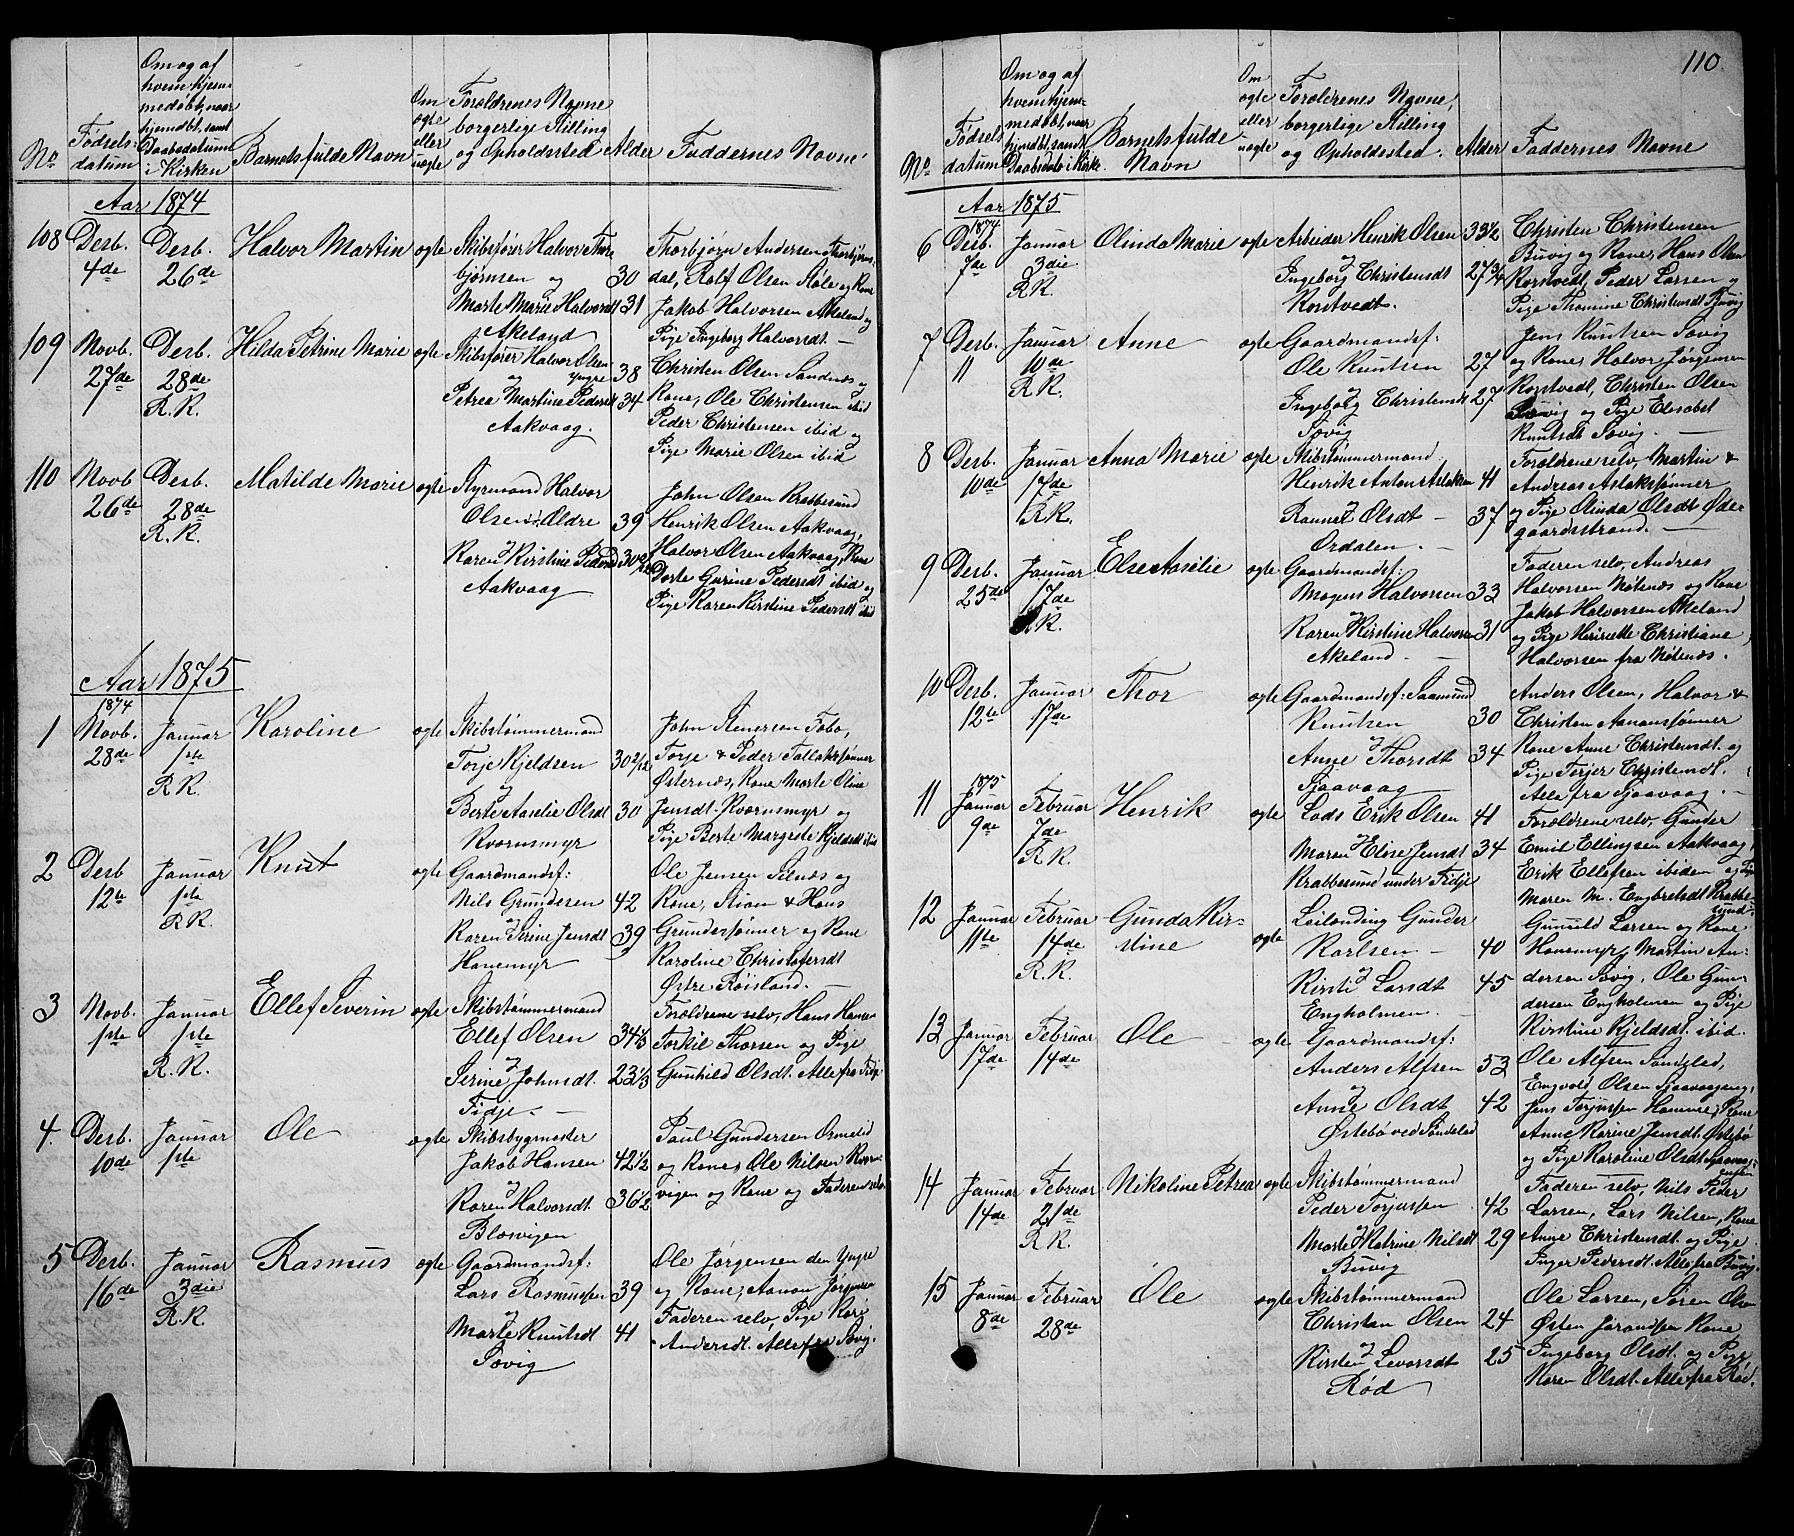 110
No
Fødsels-
datum
Om og af
hvem hjem-
medøbt, naar
hjemdbt, samt
Daabsdatum
i Kirken
Barnets fulde Navn
Om
ægte
eller
uægte
Forældrenes Navne
borgerlige Stilling
og Opholdssted
Alder
Faddernes Navne
Aar 1874
108 Desb. 4de
Desb. 26de
Halvor Martin
ægte
Skibsfører Halvor Thor
bjørnsen og 30
Marte Marie Halvorsdt 31
Akeland
Thorbjørn Andersen Thorbjørns-
dal, Rolf Olsen Stole og Kone
Jakob Halvorsen Akeland og
Pige Ingeborg Halvorsdt. —
109 Novb. 27de
Desb. 28de
R.K.
Hilda Petrine Marie
ægte
Skibsfører Halvor Olsen
og yngre 38
Petrea Martine Pedersdt 34
Aakvaag.
Christen Olsen Sandnæs og
Kone, Ole Christensen ibid
Peder Christensen ibid og
Pige Marie Olsen ibid
110 Novb 26de
Desb. 28de
R.K.
Matilde Marie
ægte
Styrmand Halvor
Olsen d. Ældre 39
og
Karen Kirstine Pedersd
Aakvaag
John Olsen Krabbesund
Henrik Olsen Aakvaag,
Halvor Olsen Aakvaag, Kone
Dorte Gurine Pedersdt ibid og
Pige Karen Kirstine Pedersdt ibid
Aar 1875
1874
1 Novb. 28de
Januar 1ste
R.K.
Karoline
ægte
Skibstømmermand
Torje Kjeldsen 30 2/12
og
Berte Amelie Olsdt 30
Kvornsmyr
John Svensen Fobo,
Torje & Peder Tallaksønner
Østernæs, Kone Marte Oline
Jensdt. Kvornsmyr og
Pige Berte Margrete Kjeldsdt ibid
2 Desb 12te
Januar 1ste
R.K.
Knut
ægte
Gaardmandsf:
Nils Grundesen 42
og
Karen Serine Jensdt 39
Hanemyr
Ole Jensen Stlnæs og
Kone, Stian & Hans
Grundesønner og Kone
Karoline Christofersdt
Østre Røisland. —
3 Novb. 1ste
Januar 1ste
R.K.
Ellef Severin
ægte
Skibstømmermand
Ellef Olsen 34½
og
Serine Johnsdt. 23⅓
Fidje. —
Forældrene selv, Hans Hansen
Torkil Thorsen og Pige
Gunhild Olsdt. Alle fra Fidje
4. Desb. 10de
Januar 1ste
Ole
ægte
Skibsbygmester
Jakob Hansen 42½
og
Karen Halvorsdt. 36½
Blosvigen
Paul Gundersen Ormelid
og Kone, Ole Nilsen Kvern-
vigen og Kone og Faderen selv
5 Desb. 16de
Januar 3die
R.K.
Rasmus
ægte
Gaardmandsf:
Lars Rasmussen 39
og
Marte Knutsdt 41
Søvig
Ole Jørgensen den Yngre
og Kone, Aanon Jørgensen
Faderen selv, Pige Kari
Andersdt. Alle fra Søvig.
No
Fødsels
datum
Om og af
hvem hjem-
medøbt, naar
hjemdbt, samt
Daabsdato i Kirke
Barnets fulde
Navn
Om
ægte
eller
uægte
Forældrenes Navne,
borgerlige Stilling
og Opholdssted.
Alder
Faddernes Navne
Aar 1875
1874
6 Desb. 7de
Januar 3die
R.K.
Olinda Marie
ægte
Arbeider Henrik Olsen 33½
og
Ingeborg Christensdt 27¾
Korstvedt.
Christen Christensen
Buvig og Kone, Hans Olsen
Korstvedt, Peder Larsen og
Pige Thomine Christensdt Buvig
7 Desb. 11
Januar 10de
R.K.
Anne
ægte
Gaardmandsf:
Ole Knutsen 27
og
Ingeborg Christensdt 27
Søvig
Jens Knutsen Søvig
og Kone, Halvor Jørgensen
Korstvedt, Christen Olsen
Søvig og Pige Elisabet
Knutsdt Søvig. —
8 Desb. 10de
Januar 17de
R.K.
Anna Marie
ægte
Skibstømmermand
Henrik Anton Aslaksen 41
og
Rannei Olsdt — 37
Ordalen. —
Forældrene selv, Martin &
Andreas Aslaksønner
og Pige Olinda Olsdt Øder
gaardsstrand. —
9 Desb. 25de
Januar 17de
R.K.
Else Amelie
ægte
Gaardmandsf:
Mogens Halvorsen 33
og
Karen Kirstine Halvorsen 31
Akeland. —
Faderen selv, Andreas
Halvorsen Nøtenæs og Kone
Jakob Halvorsen Akeland
og Pige Henriette Christiane
Halvorsen fra Nøtenæs.
10 Desb. 12te
Januar 17de
Thor
ægte
Gaardmandsf: Saamund
Knutsen 30
og
Anne Thorsdt 34
Sjaavaag
Anders Olsen, Halvor &
Christen Aanonsønner
Kone Anne Christensdt. og
Pige Torjer Christensdt.
Alle fra Sjaavaag. —
1875
11 Januar 9de
Februar 7de
R.K.
Henrik
ægte
Lods Erik Olsen 41
og
Maren Elise Jensdt 34
Krabbesund under Fidje
Forældrene selv, Gunder
Emil Ellingsen Aakvaag,
Erik Ellefsen ibiden og Pige
Maren M. Engbretsdt Krabbe-
sund.
12 Januar 11te
Februar 14de
R.K.
Gunda Kir-
stine
ægte
Leilending Gunder
Karlsen — 40
og
Kirsti Larsdt 45
Engholmen. —
Gunuld Larsen og Kone
Hanemyr, Martin An-
dersen Søvig, Ole Gun-
dersen Engholmen og Pige
Kirstine Kjeldsdt. ibid.
13 Januar 17de
Februar 14de
Ole
ægte
Gaardmandsf:
Anders Alfsen 53
og
Anne Olsdt 42
Østebø ved Sandelad
Ole Alfsen Sandelad,
Engvold Olsen Sjaavaageng,
Jens Torjusen Homme, Kone
Anne Karine Jensdt. Østebø
og Pige Karoline Olsdt. Sjaavaag-
engen
14 Januar 14de
Februar 21de
R.K.
Nikoline Petrea
ægte
Skibstømmermand
Peder Torjussen 42
og
Marte Katrine Nilsdt 29
Buvig
Faderen selv, Nils Peder
Larsen, Lars Nilsen, Kone
Anne Christensdt. og Pige
Inger Pedersdt. Alle fra Buvig.
15 Januar 8de
Februar 28de
Ole
ægte
Skibstømmermand
Christen Olsen 24
og
Kirsten Levorsdt 25
Rød
Ole Larsen, Søren Olsen
Østen Jørandsen Kone
Ingeborg Olsdt. og Pige
Maren Olsdt. Alle fra Rød.